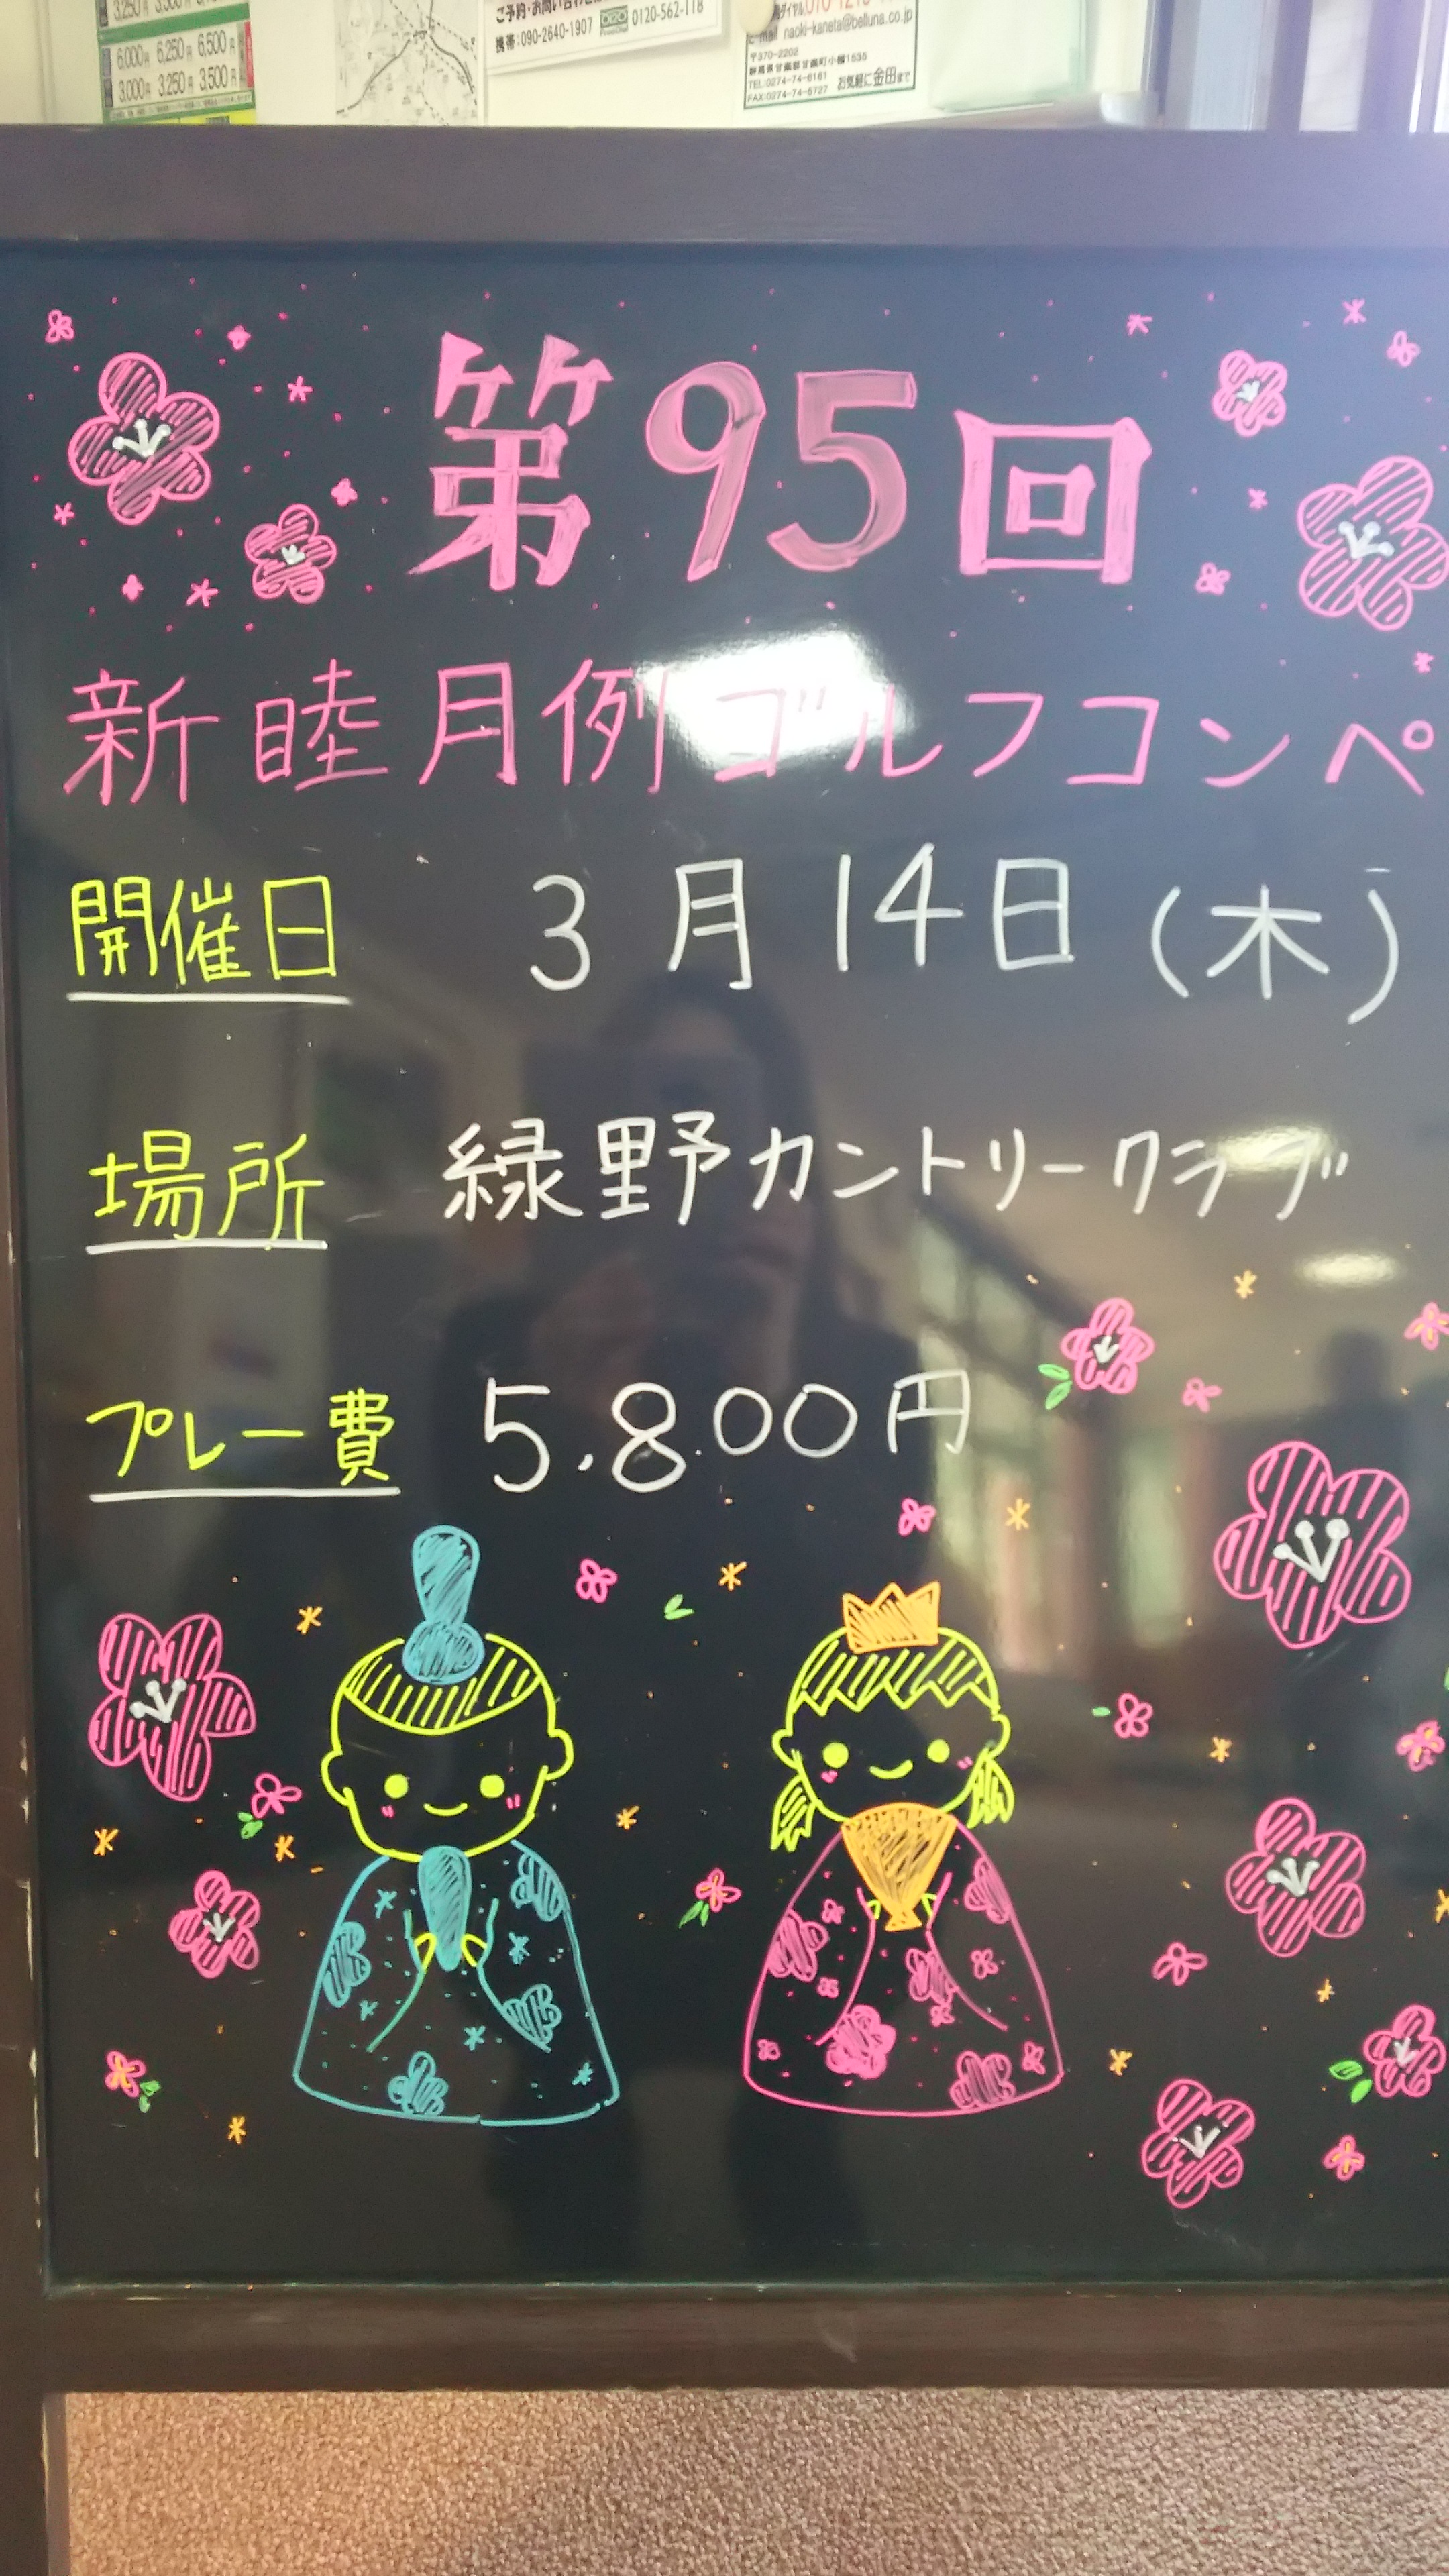 3,250円 3,500円
6,000円 6,250円 6,500円
3,000円 3,250円 3,500円
携帯:090-2640-1907 0120-562-118
e-mail naoki-kaneta@belluna.co.jp
〒370-2202
群馬県甘楽郡甘楽町小幡1535
TEL:0274-74-6161
FAX:0274-74-6727 お気軽に金田まで
第95回
新睦月例ゴルフコンペ
開催日 3月14日(木)
場所 緑野カントリークラブ
プレー費 5,800円